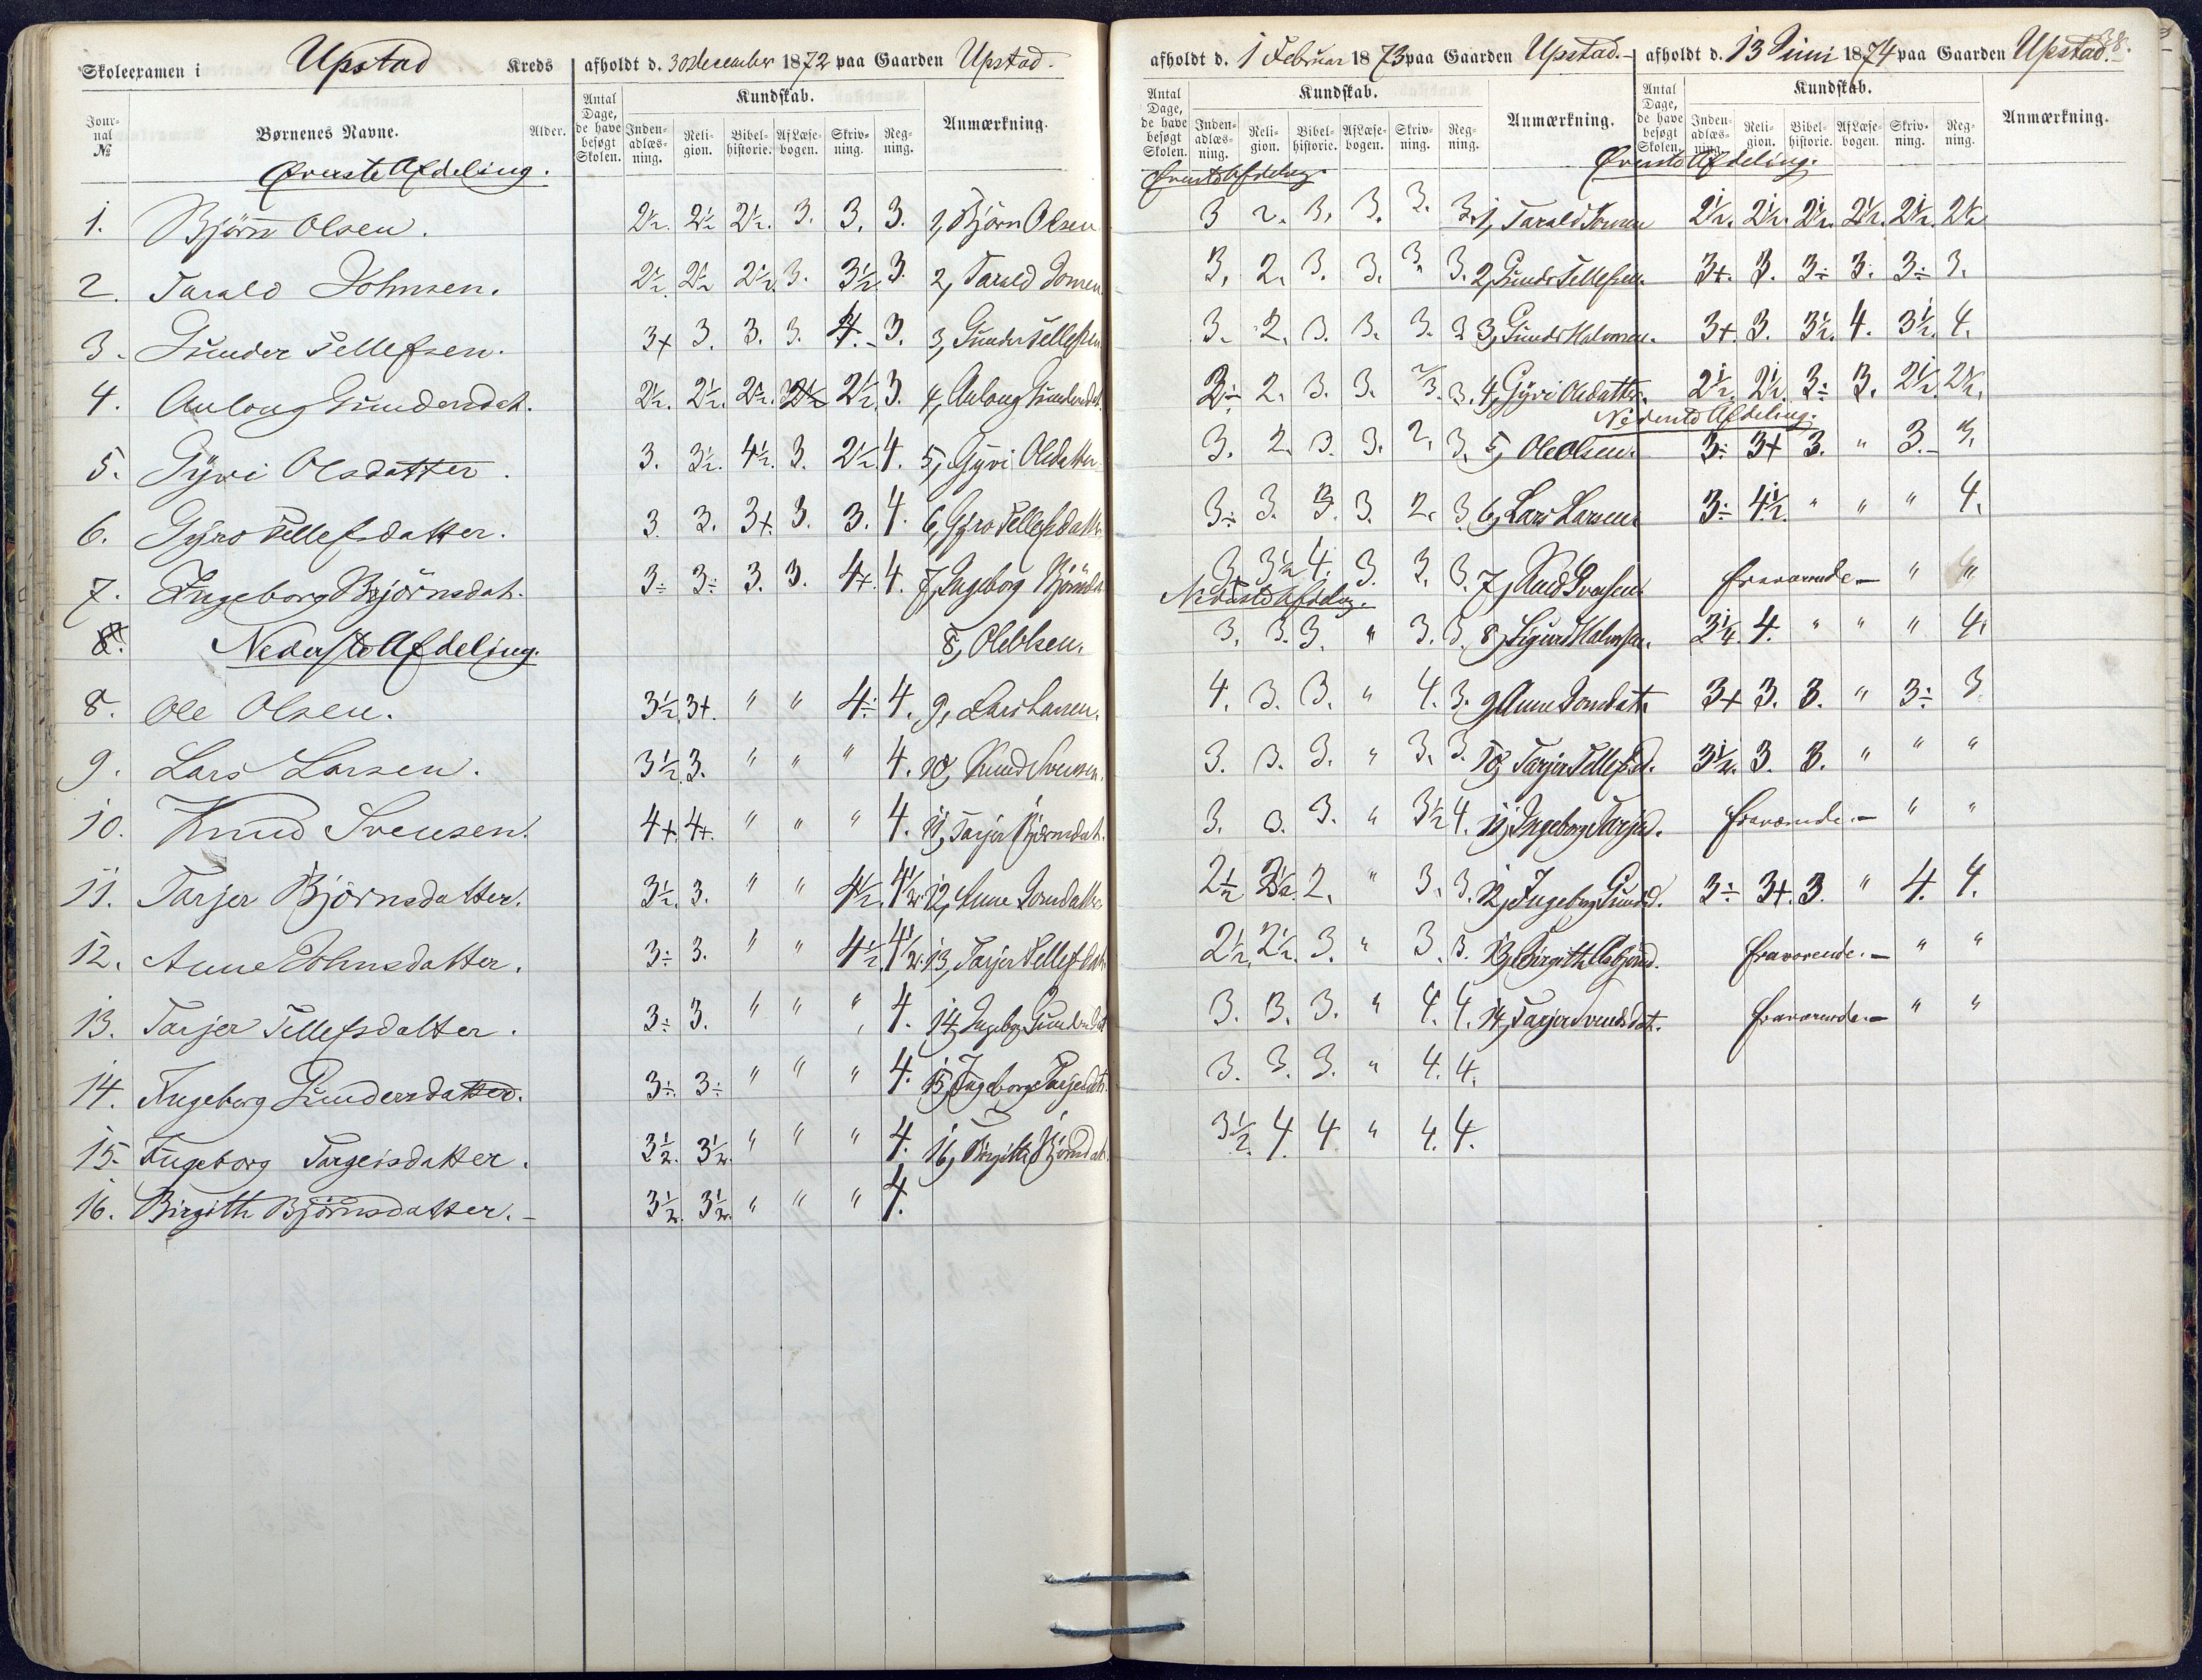 Skoleexamen i Upstad Kreds afholdt d. 30 december 1872 paa Gaarden Upstad.
Jour-nal № Børnenes Navne. Alder. Antal Dage, de have besøgt Skolen. Kundskab. Inden-adlæs-ning. Reli-gion. Bibel-historie. Af Læse-bogen. Skriv-ning. Reg-ning. Anmærkning.
Øverste Afdeling.
1. Björn Olsen. 2½. 2½ 2½. 3. 3. 3. 1, Björn Olsen
2. Tarald Johnsen. 2½ 2½ 2½. 3. 3½. 3. 2, Tarald Jonsen
3. Gunder Tellefsen. 3+ 3. 3. 3. 4.- 3. 3, Gunder Tellefsen
4. Anlaug Gundersdat. 2½. 2½. 2½. 2½ 2½. 3. 4, Anlaug Gundersdat.
5. Gÿvi Olsdatter. 3. 3½. 4½. 3. 2½. 4. 5, Gyvi Olsdatter
6. Gÿro Tellefsdatter. 3. 3. 3+. 3. 3. 4. 6, Gÿro Tellefsdatter
7. Ingeborg Björnsdat. 3÷ 3÷ 3. 3. 4+. 4. 7, Ingeborg Björnsdat
8. Nederste Afdeling. 8, Ole Olsen.
8. Ole Olsen. 3½. 3+. " " 4÷ 4. 9, Lars Larsen.
9. Lars Larsen. 3½. 3. " " " 4. 10, Knud Svensen.
10. Knud Svensen. 4+. 4+. " " " 4. 11, Tarjer Bjørnsdat.
11. Tarjer Björnsdatter. 3½. 3. " " 4½. 4½. 12, Anne Jonsdatter
12. Anne Johnsdatter. 3÷ 3. " " 4½. 4½. 13, Tarjer Tellefsdat.
13. Tarjer Tellefsdatter. 3÷ 3. " " " 4. 14, Ingeborg Gundersdat
14. Ingeborg Gundersdatter. 3÷ 3÷ " " " 4. 15, Ingeborg Tarjeisdat.
15. Ingeborg Targeisdatter. 3½. 3½. " " " 4. 16, Birgith Bjönsdat.
16. Birgith Björnsdatter.- 3½. 3½. " " " 4.
38.
afholdt d. 1 Februar 1873 paa Gaarden Upstad.-
Antal Dage, de have besøgt Skolen. Kundskab. Inden-adlæs-ning. Reli-gion. Bibel-historie. Af Læse-bogen. Skriv-ning. Reg-ning. Anmærkning.
Øverste Afdeling.
3 2. 3. 3. 3. 3. 1, Tarald Jonsen
3. 2. 3. 3. 3. 3. 2, Gunder Tellefsen.
3. 2. 3. 3. 3. 3 3, Gunder Halvorsen.
3÷ 2. 3. 3. 2/3. 3. 4, Gÿvi Olsdatter.
3. 2. 3. 3. 2. 3. 5, Ole Olsen.
3÷ 3. 3. 3. 2. 3. 6, Lars Larsen
3 3½ 4. 3. 3. 3. 7, Knud Svensen
Nederste Afdeling.
3. 3. 3. " 3. 3. 8, Sigurd Halvorsen.
4. 3. 3. " 4. 3. 9, Anne Jonsdat.
3. 3. 3. " 3. 3. 10, Tarjer Tellefsd.
3. 3. 3. " 3½ 4. 11, Ingeborg Tarjeisd.
2½ 2½. 2. " 3. 3. 12, Ingeborg Gundersd.
2½. 2½. 3. " 3. 3. 13, Birgith Asbjönsd.
3. 3. 3. " 4. 4. 14, Tarjer Svensdat.
3. 3. 3. " 4. 4.
3½. 4. 4 " 4. 4.
afholdt d. 13 Juni 1874 paa Gaarden Upstad.
Antal Dage, de have besøgt Skolen. Kundskab. Inden-adlæs-ning. Reli-gion. Bibel-historie. Af Læse-bogen. Skriv-ning. Reg-ning. Anmærkning.
Øverste Afdeling.
2½. 2½. 2½. 2½. 2½. 2½
3+. 3. 3÷ 3. 3÷ 3.
3+. 3. 3½. 4. 3½. 4.
2½. 2½. 3÷ 3. 2½. 2½.
Nederste Afdeling.
3÷ 3+ 3. " 3.- 3.
3÷ 4½. " " " 4.
fraværende- " "
3¼. 4. " " " 4.
3+ 3. 3. " 3÷ 3
3½. 3. 3. " " "
fraværende.- " "
3÷ 3+. 3. " 4. 4.
fraværende.- " "
fraværende.- " "